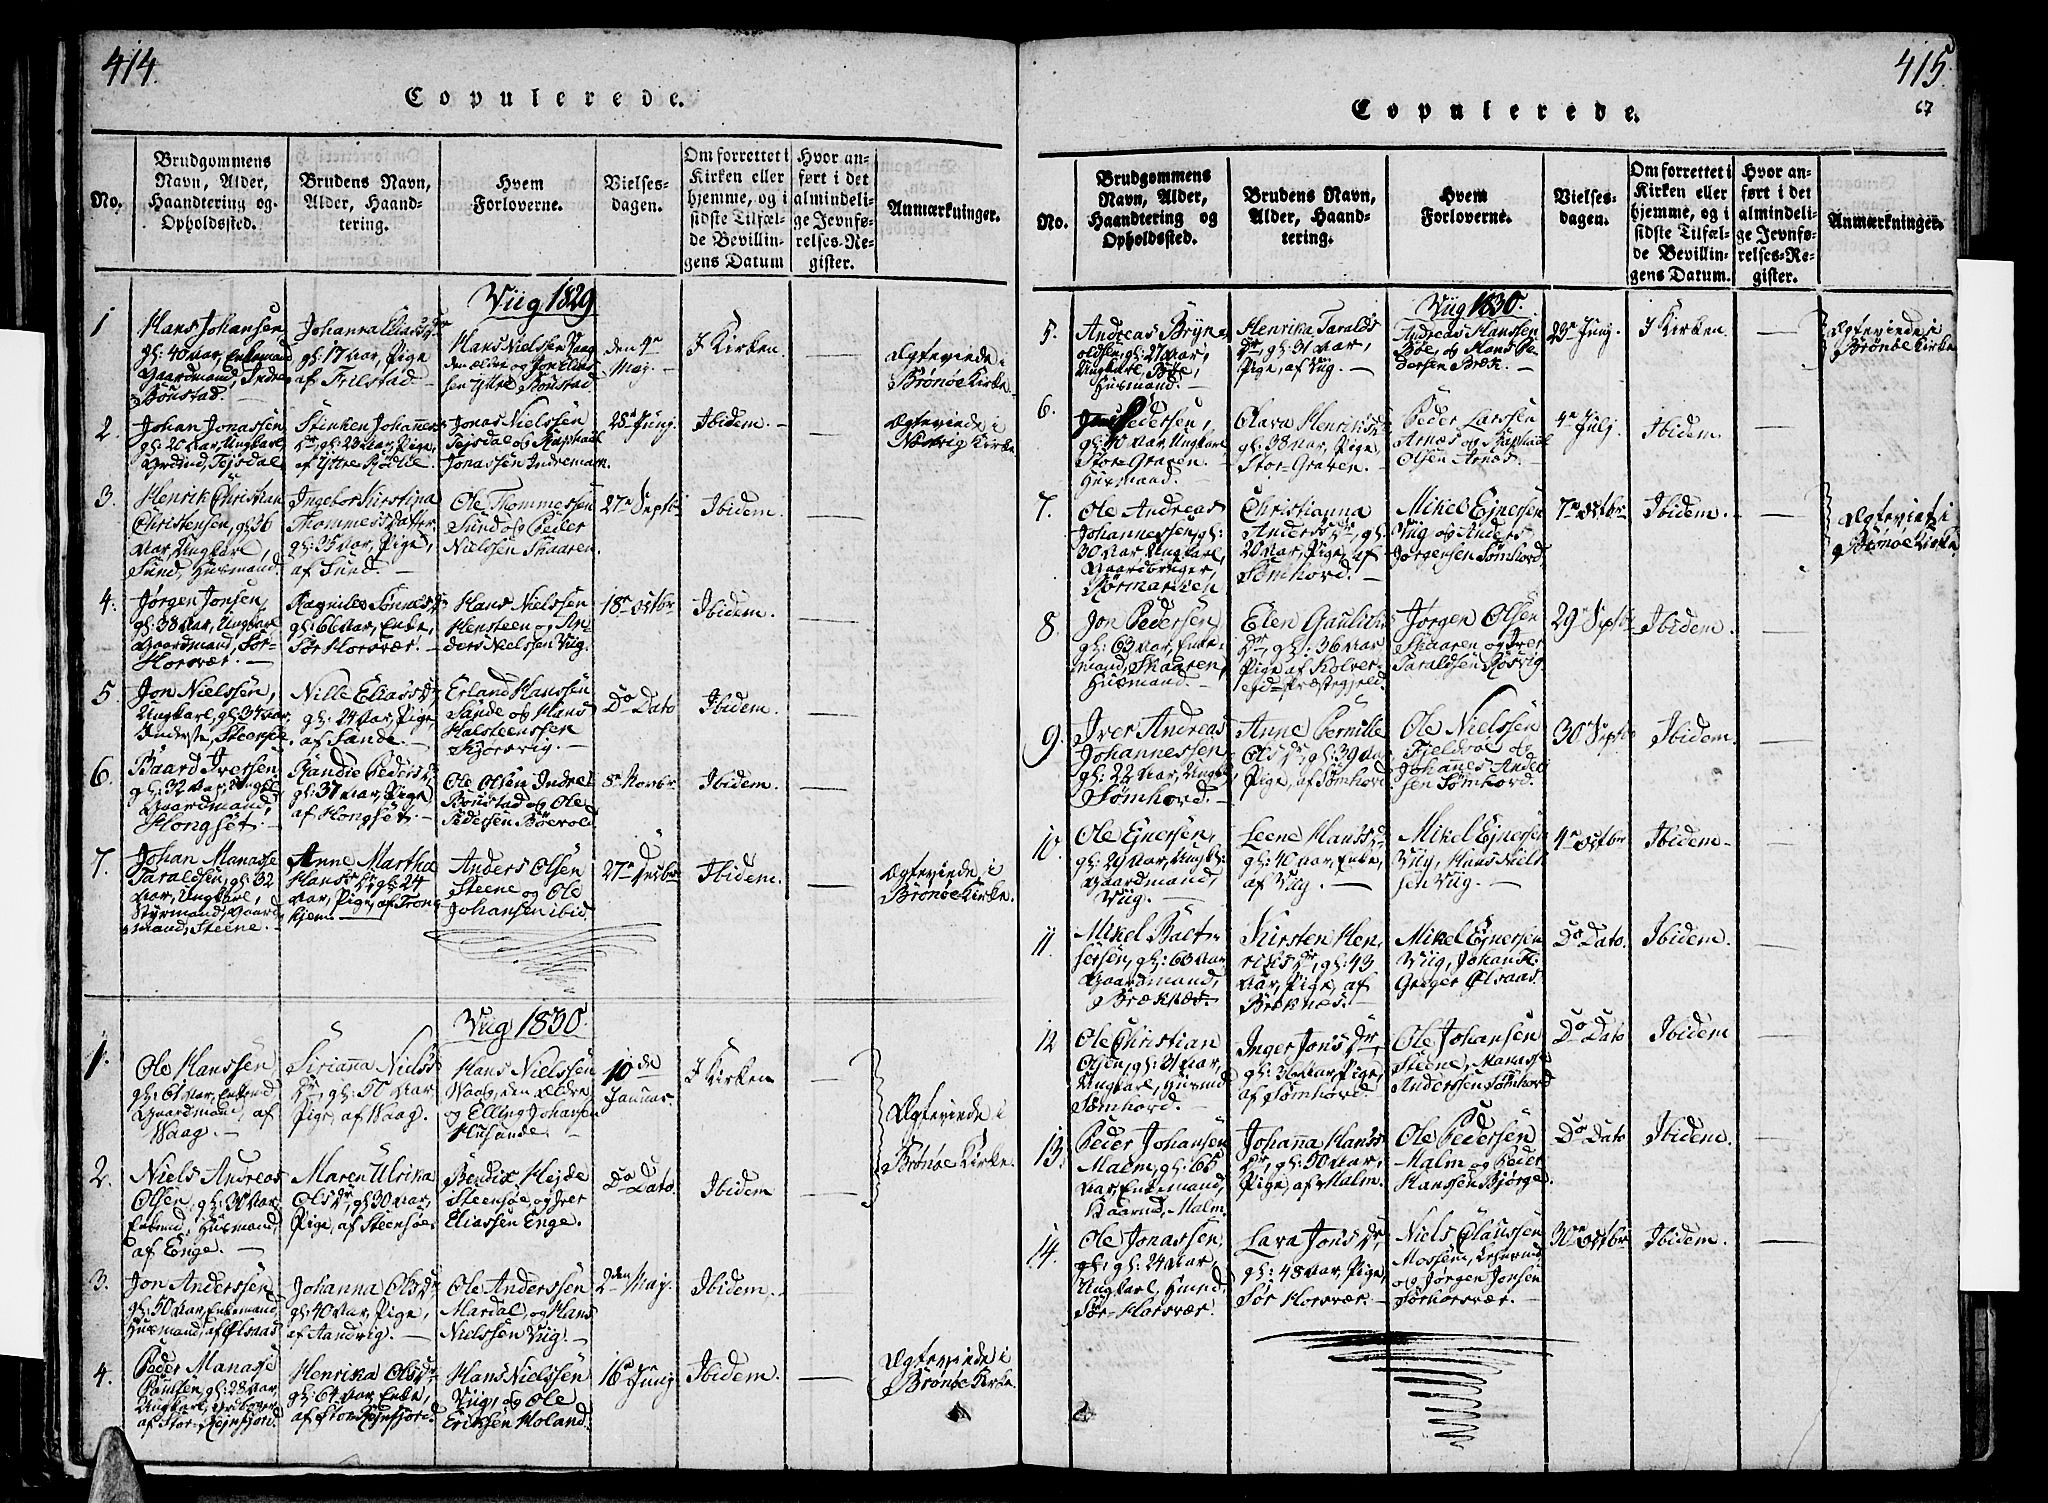 414.
Copulerede.
No.
Brudgommens
Navn, Alder,
Haandtering og
Opholdssted.
Brudens Navn,
Alder, Haand-
tering.
Hvem
Forloverne.
Vielses-
dagen.
Om forrettet i
Kirken eller
hjemme, og i
sidste Tilfæl-
de Bevillin-
gens Datum
Hvor an-
ført i det
almindeli-
ge Jevnfø-
relses-Re-
gister.
Anmærkninger.
Viig 1829
1
Hans Johansen
gl: 40 Aar, Enkemand
Gaardmand, Indre
Bønstad.
Johanna Eliasdr
gl: 17 Aar, Pige
af Frilstad
Hans Nielssen Vaag
den ældre og Jon Elias-
sen Yttre Bønstad
den 4de
Maj.
I Kirken.
Ægteviede i
Brønøe Kirke.
2.
Johan Jonassen
gl: 20 Aar, Ungkarl
Tejsdal
Stinken Johannes
Dr, gl: 23 Aar, Pige
af Yttre
Jonas Nielssen
Tejsdal og Raphael
Jonassen Indremark.
Junj.
Ibidem.
Ægteviede i
Kirke
3.
Henrik Christian
Christensen, gl: 36
Aar, Ungkarl,
Sund, Huusmand.
Ingebor Kirstina
Thommesdatter
gl: 35 Aar, Pige,
af Sund.
Ole Thommessen
Sund og Peder
Nielssen Skaaren.
27de Septb
Ibidem.
4.
Jørgen Jonsen,
gl: 38 Aar, Ungkarl
Gaardmand, Sør-
Horsvær.
Ragnilde Tønnesdr
gl: 66 Aar, Enke,
Sør Horsvær.
Hans Nielssen
Hensteen og An-
ders Nielssen Viig.
18de Octbr
Ibidem.
5.
Jon Nielssen,
Ungkarl, gl: 34 Aar
Inderste,
Nille Eliasdr
gl: 24 Aar, Pige,
af Sande.
Erland Hanssen
Sande og Hans
Halsteenssen
Do Dato
Ibidem.
6.
Baard Iversen
gl: 32 Aar, Ungkl
Gaardmand,
Hongset.
Randie Pedersdr
gl: 37 Aar, Pige
af Hongset.
Ole Olsen Indre
Bønstad og Ole
Pedersen
8de Novbr
Ibidem.
7.
Johan Manasse
Taraldsen, gl: 32
Aar, Ungkarl,
Styrmand, Gaard-
mand, Steene.
Anne Martha
Hansdr, gl: 24
Aar, Pige, af Trond-
hjem.
Anders Olsen
Steene og Ole
Johansen ibid.
27de Decbr
Ibidem.
Ægteviede i
Brønøe Kirke.
Viig 1830.
1.
Ole Hanssen
gl: 61 Aar, Enkmd
Gaardmand, af
Waag.
Sirianna Niels
Dr, gl: 50 Aar
Pige, af Waag.
Hans Nielssen
Waag, den ældre
og Elling Johansen
Husunde.
10de
Januar.
I Kirken
Ægteviede i
Brønøe Kirke.
2.
Niels Andreas
Olsen, gl: 38 Aar,
Enkmd, Huusmand,
af Enge.
Maren Ulrika
Olsdr, gl: 30 Aar,
Pige, af Steensøe
Bendix Hejde
Steensøe, og Iver
Eliassen Enge.
Do Dato.
Ibidem
3.
Jon Anderssen
gl: 50 Aar, Enkemand
Huusmand, af Ølsaas
Johanna Olsdr
gl: 40 Aar, Pige,
af Aandvig.
Ole Anderssen
Mardal, og Hans
Nielssen Viig.
2den Maj.
Ibidem.
4.
Peder Manasse
gl: 28 Aar,
Ungkarl,
af Stor-Rejnsfjord
Henrika Olsdr
gl: 64 Aar, Enke,
af Stor Rejnsfjord.
Hans Nielssen
Viig, og Ole
Erikssen Holand.
16de Junj
Ibidem.
Ægteviede i
Brønøe Kirke.
415.
67
Copulerede.
No.
Brudgommens
Navn, Alder,
Haandtering og
Opholdssted.
Brudens Navn,
Alder, Haand-
tering.
Hvem
Forloverne.
Vielses-
dagen.
Om forrettet i
Kirken eller
hjemme, og i
sidste Tilfæl-
de Bevillin-
gens Datum.
Hvor an-
ført i det
almindeli-
ge Jevnfø-
relses-Re-
gister.
Anmærkninger.
Viig 1830.
5.
Andreas Bryn-
oldsen, gl: 27 Aar,
Ungkarl, Bøe,
Huusmand.
Henrika Taralds
Dr, gl: 31 Aar,
Pige, af Viig.
Andreas Hanssen
Bøe, og Hans Pe-
dersen Bræk.
23de Junj
I Kirken.
Ægteviede i
Brønøe Kirke
6.
Pedersen,
gl: 40 Aar, Ungkarl
Stor-Graven.
Huusmand.
Olava Henriksdr
gl: 38 Aar, Pige,
Stor-Graven.
Peder Larssen
Arnæs og Raphael
Olsen Arnæs.
4de Julj
Ibidem.
7.
Ole Andreas
Johannessen, gl:
30 Aar, Ungkarl
Gaardbruger,
Rørmarken
Christianna
Andersdr, gl:
20 Aar, Pige, af
Sømhord.
Mikel Ejnersen
Viig og Anders
Jørgensen Sømhord.
7de Octbr
Ibidem.
Ægteviet i
Brønøe Kirke
8.
Jon Pedersen
gl: 63 Aar, Enke-
mand, Skaaren,
Huusmand.
Elen Gaulichs
Dr, gl: 36 Aar
Pige, af Kolver-
ejd-Præstegjeld.
Jørgen Olsen
Skaaren og Iver
Taraldsen Rørvig.
29de Septb
Ibidem.
9.
Iver Andreas
Johannessen
gl: 22 Aar, Ungkl
Sømhord.
Anne Pernille
Olsdr, gl: 39 Aar
Pige, af Sømhord
Ole Nielssen
Fjeldvoe og
Johannes Ander-
sen Sømhord.
30de Septb
Ibidem.
10.
Ole Ejnersen,
gl: 29 Aar, Ungkl:
Gaardmand,
Viig.
Leene Hansdr
gl: 40 Aar, Enke,
af Viig.
Mikel Ejnersen
Viig, Hans Niels-
sen Viig.
4de Octbr
Ibidem.
11.
Mikel Balt-
sersen, gl: 63 Aar
Gaardmand,
Bræknæs.
Kirsten Hen-
riksdr, gl: 43
Aar, Pige, af
Bræknes.
Mikel Ejnersen
Viig, Johan H.
Greger Ølsaas.
Do Dato.
Ibidem.
12
Ole Christian
Olsen, gl: 31 Aar,
Ungkarl, Huusmd
Sømhord.
Inger Jonsdr,
gl: 36 Aar, Pige,
af Sømhord.
Ole Johansen
Steene, Manasse
Anderssen Sømhord
Do Dato
Ibidem
13.
Peder Johansen
Malm, gl: 65
Aar, Enkemand,
Gaarmd, Malm.
Johanna Hans
Dr, gl: 50 Aar,
Pige, af Malm.
Ole Pedersen
Malm og Peder
Hanssen Bjørge.
Do Dato
Ibidem.
14.
Ole Jonassen,
gl: 24 Aar,
Ungkarl, Husmd,
Sør-Horsvær.
Lara Jonsdr,
gl: 48 Aar, Pige,
Sør Horsvær.
Niels Clausssen
Mossem,
og Jørgen Jonsen
Sørhorsvær.
30de Octbr
Ibidem.